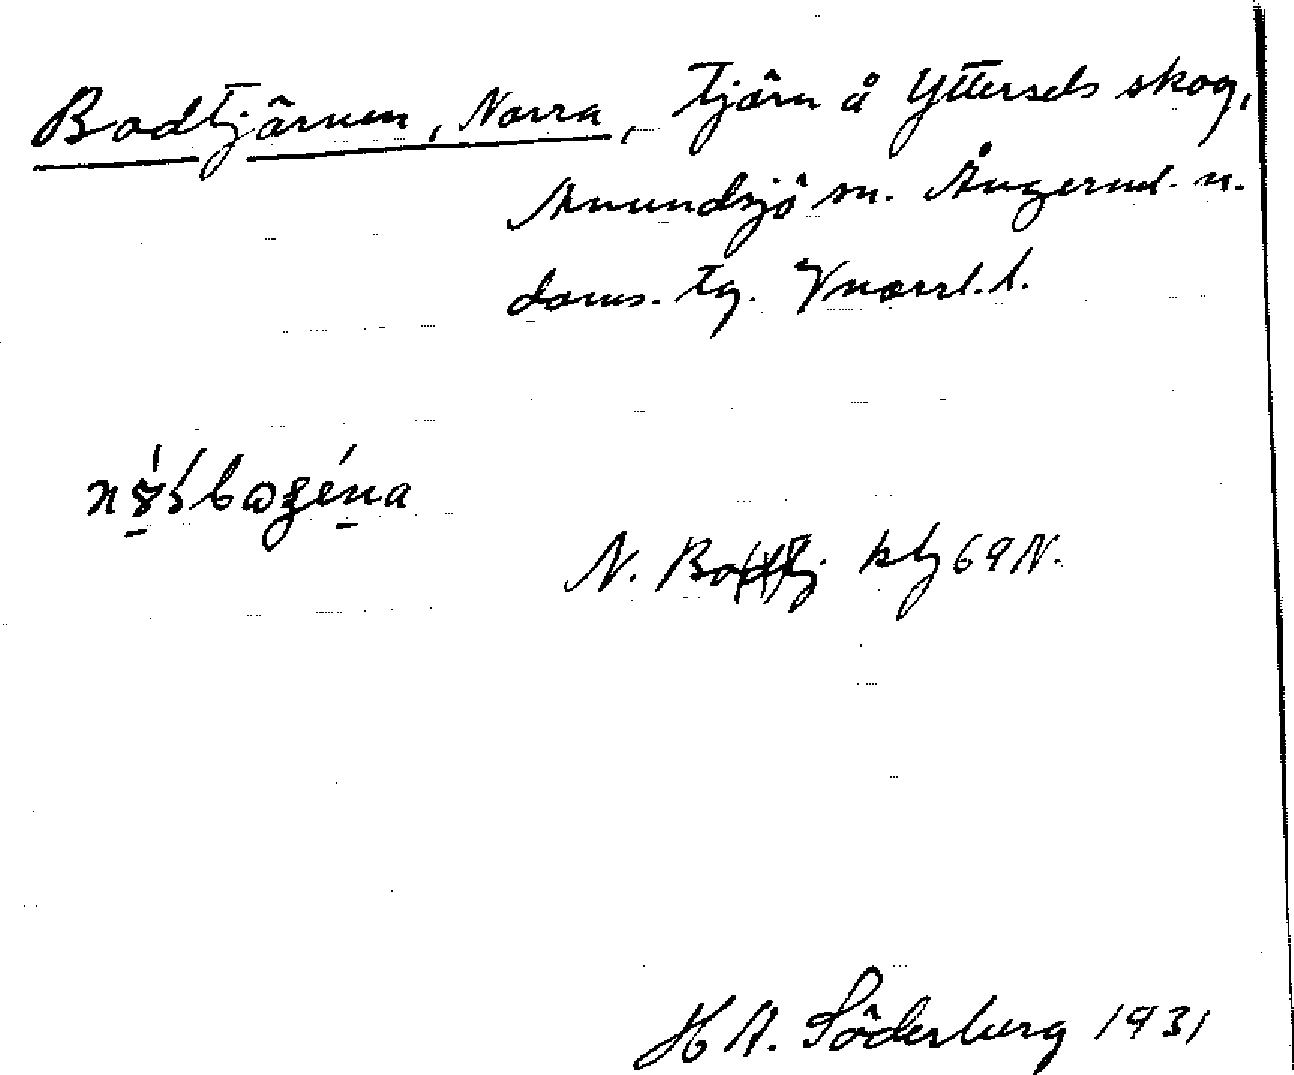 Bodtjärnen, Norra, tjärn å Yttersels skog,
Anundsjö sn. Ångerml. n.
doms. tg. Vnorrl. l.
N. Bodtj. kbl 69 N.
H A. Söderberg 1931